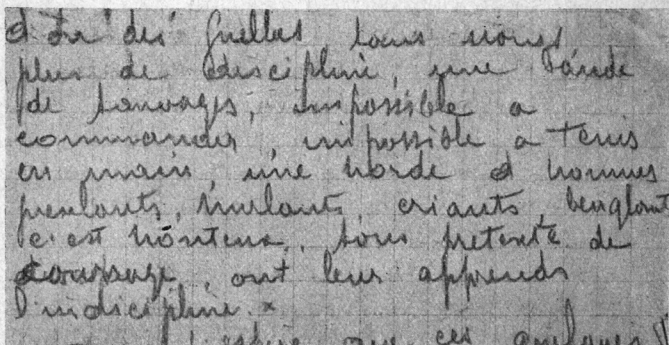 des gueules tous noires
plus de discipline, une bande
de sauvages, impossible a
commander, impossible a tenir
en main, une horde d hommes
hurlants, criants, beuglant
c'est honteux, sous pretexte de
courage, ont leur apprends
l'indiscipline. x
que ces quelques